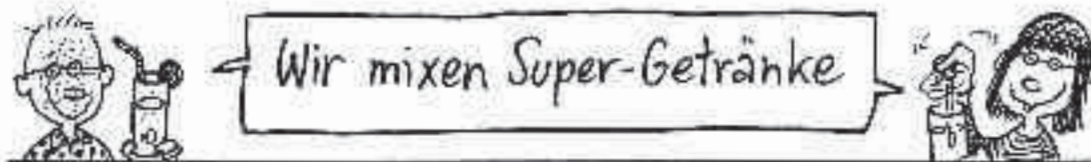 Wir mixen Super-Getränke